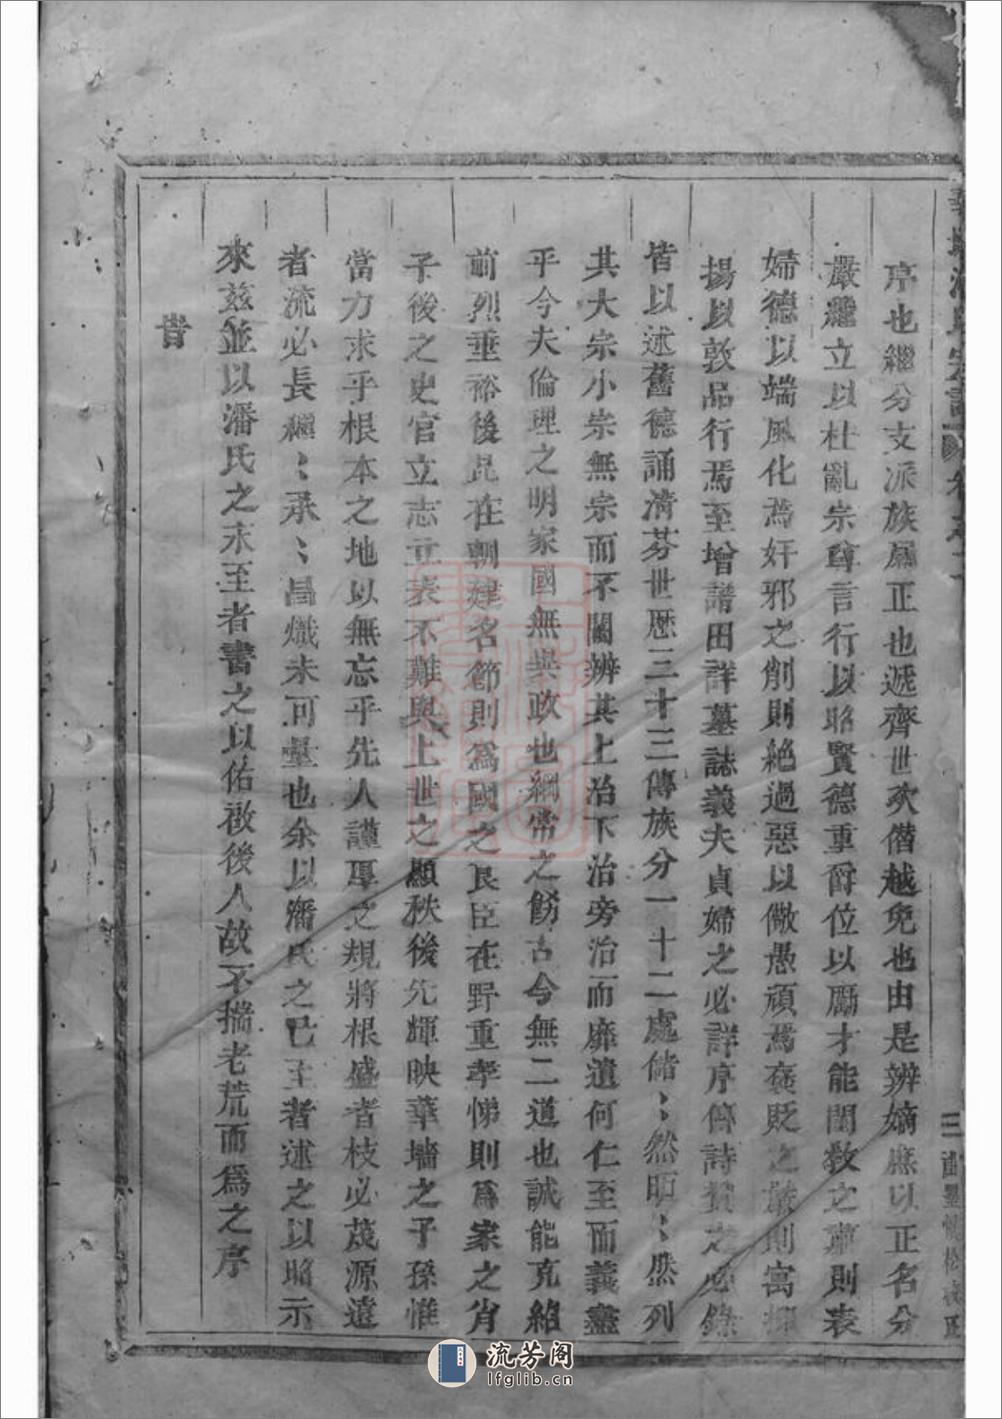 序也繼分支派族屬正也遞齊世次僭越免也由是辨嫡庶以正名分
嚴繼立以杜亂宗尊言行以昭賢德重爵位以勵才能閨教之肅則表
婦德以端風化為奸邪之削則絕過惡以儆愚頑焉褒貶之嚴則寓
揚以敦品行焉至增譜田詳墓誌義夫貞婦之必詳序傳詩贊之必錄
皆以述舊德誦清芬世歷三十三傳族分一十二處儲〻然昭〻然列
其大宗小宗無宗而不關辨其上治下治旁治而靡遺何仁至而義盡
乎今夫倫理之明家國無異政也綱常之飭古今無二道也誠能克紹
前烈垂裕後昆在朝建名節則為國之良臣在野重孝悌則為家之肖
子後之史官立志立表不難與上世之顯秩後先輝映華墻之子孫惟
當力求乎根本之地以無忘乎先人謹厚之規將根盛者枝必茂源遠
者流必長繩〻承〻昌熾未可量也余以潘氏之已至者述之以昭示
來茲並以潘氏之未至者書之以佑啟後人故不揣老荒而為之序
旹
三
流芳阁
lfglib.cn